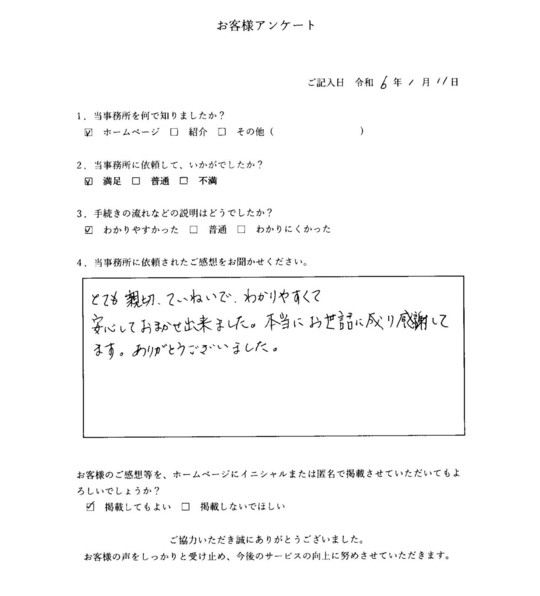 お客様アンケート
ご記入日 令和 6 年 1 月 11 日
1．当事務所を何で知りましたか？
☑ ホームページ □ 紹介 □ その他（ ）
2．当事務所に依頼して、いかがでしたか？
☑ 満足 □ 普通 □ 不満
3．手続きの流れなどの説明はどうでしたか？
☑ わかりやすかった □ 普通 □ わかりにくかった
4．当事務所に依頼されたご感想をお聞かせください。
とても親切、ていねいで、わかりやすくて
安心しておまかせ出来ました。本当にお世話に成り感謝して
ます。ありがとうございました。
お客様のご感想等を、ホームページにイニシャルまたは匿名で掲載させていただいてもよ
ろしいでしょうか？
☑ 掲載してもよい □ 掲載しないでほしい
ご協力いただき誠にありがとうございました。
お客様の声をしっかりと受け止め、今後のサービスの向上に努めさせていただきます。